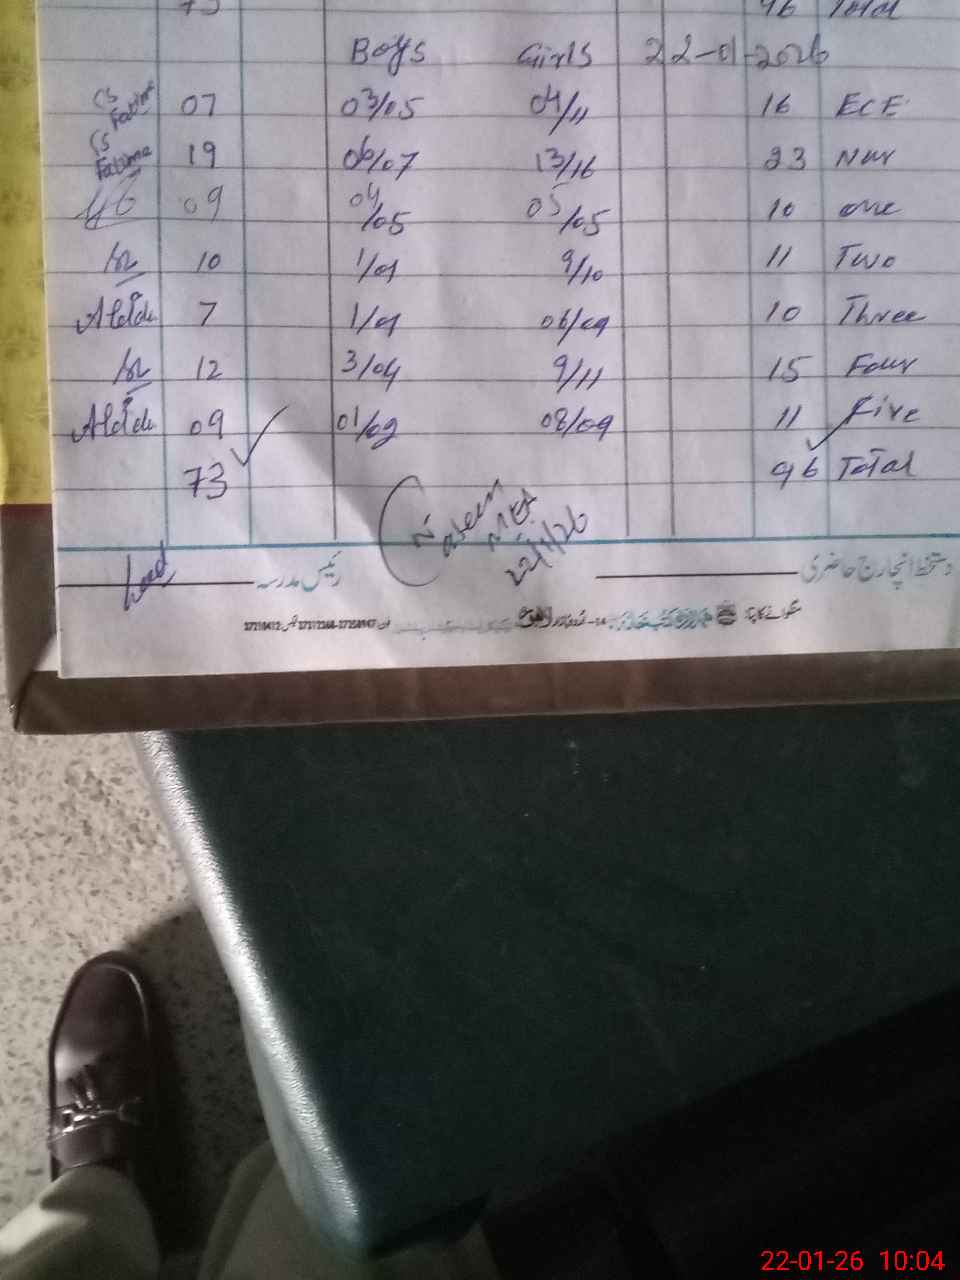 73 96 Total
Boys Girls 22-01-2026
CS Fatima 07 03/05 04/11 16 ECE
CS Fatima 19 06/07 13/16 23 Nur
09 04/05 05/05 10 one
10 1/01 9/10 11 Two
7 1/01 06/09 10 Three
12 3/04 9/11 15 Four
09 01/02 08/09 11 Five
73 96 Total
Naeem
22/1/26
head رئیس مدرسہ دستخط انچارج حاضری
22-01-26 10:04